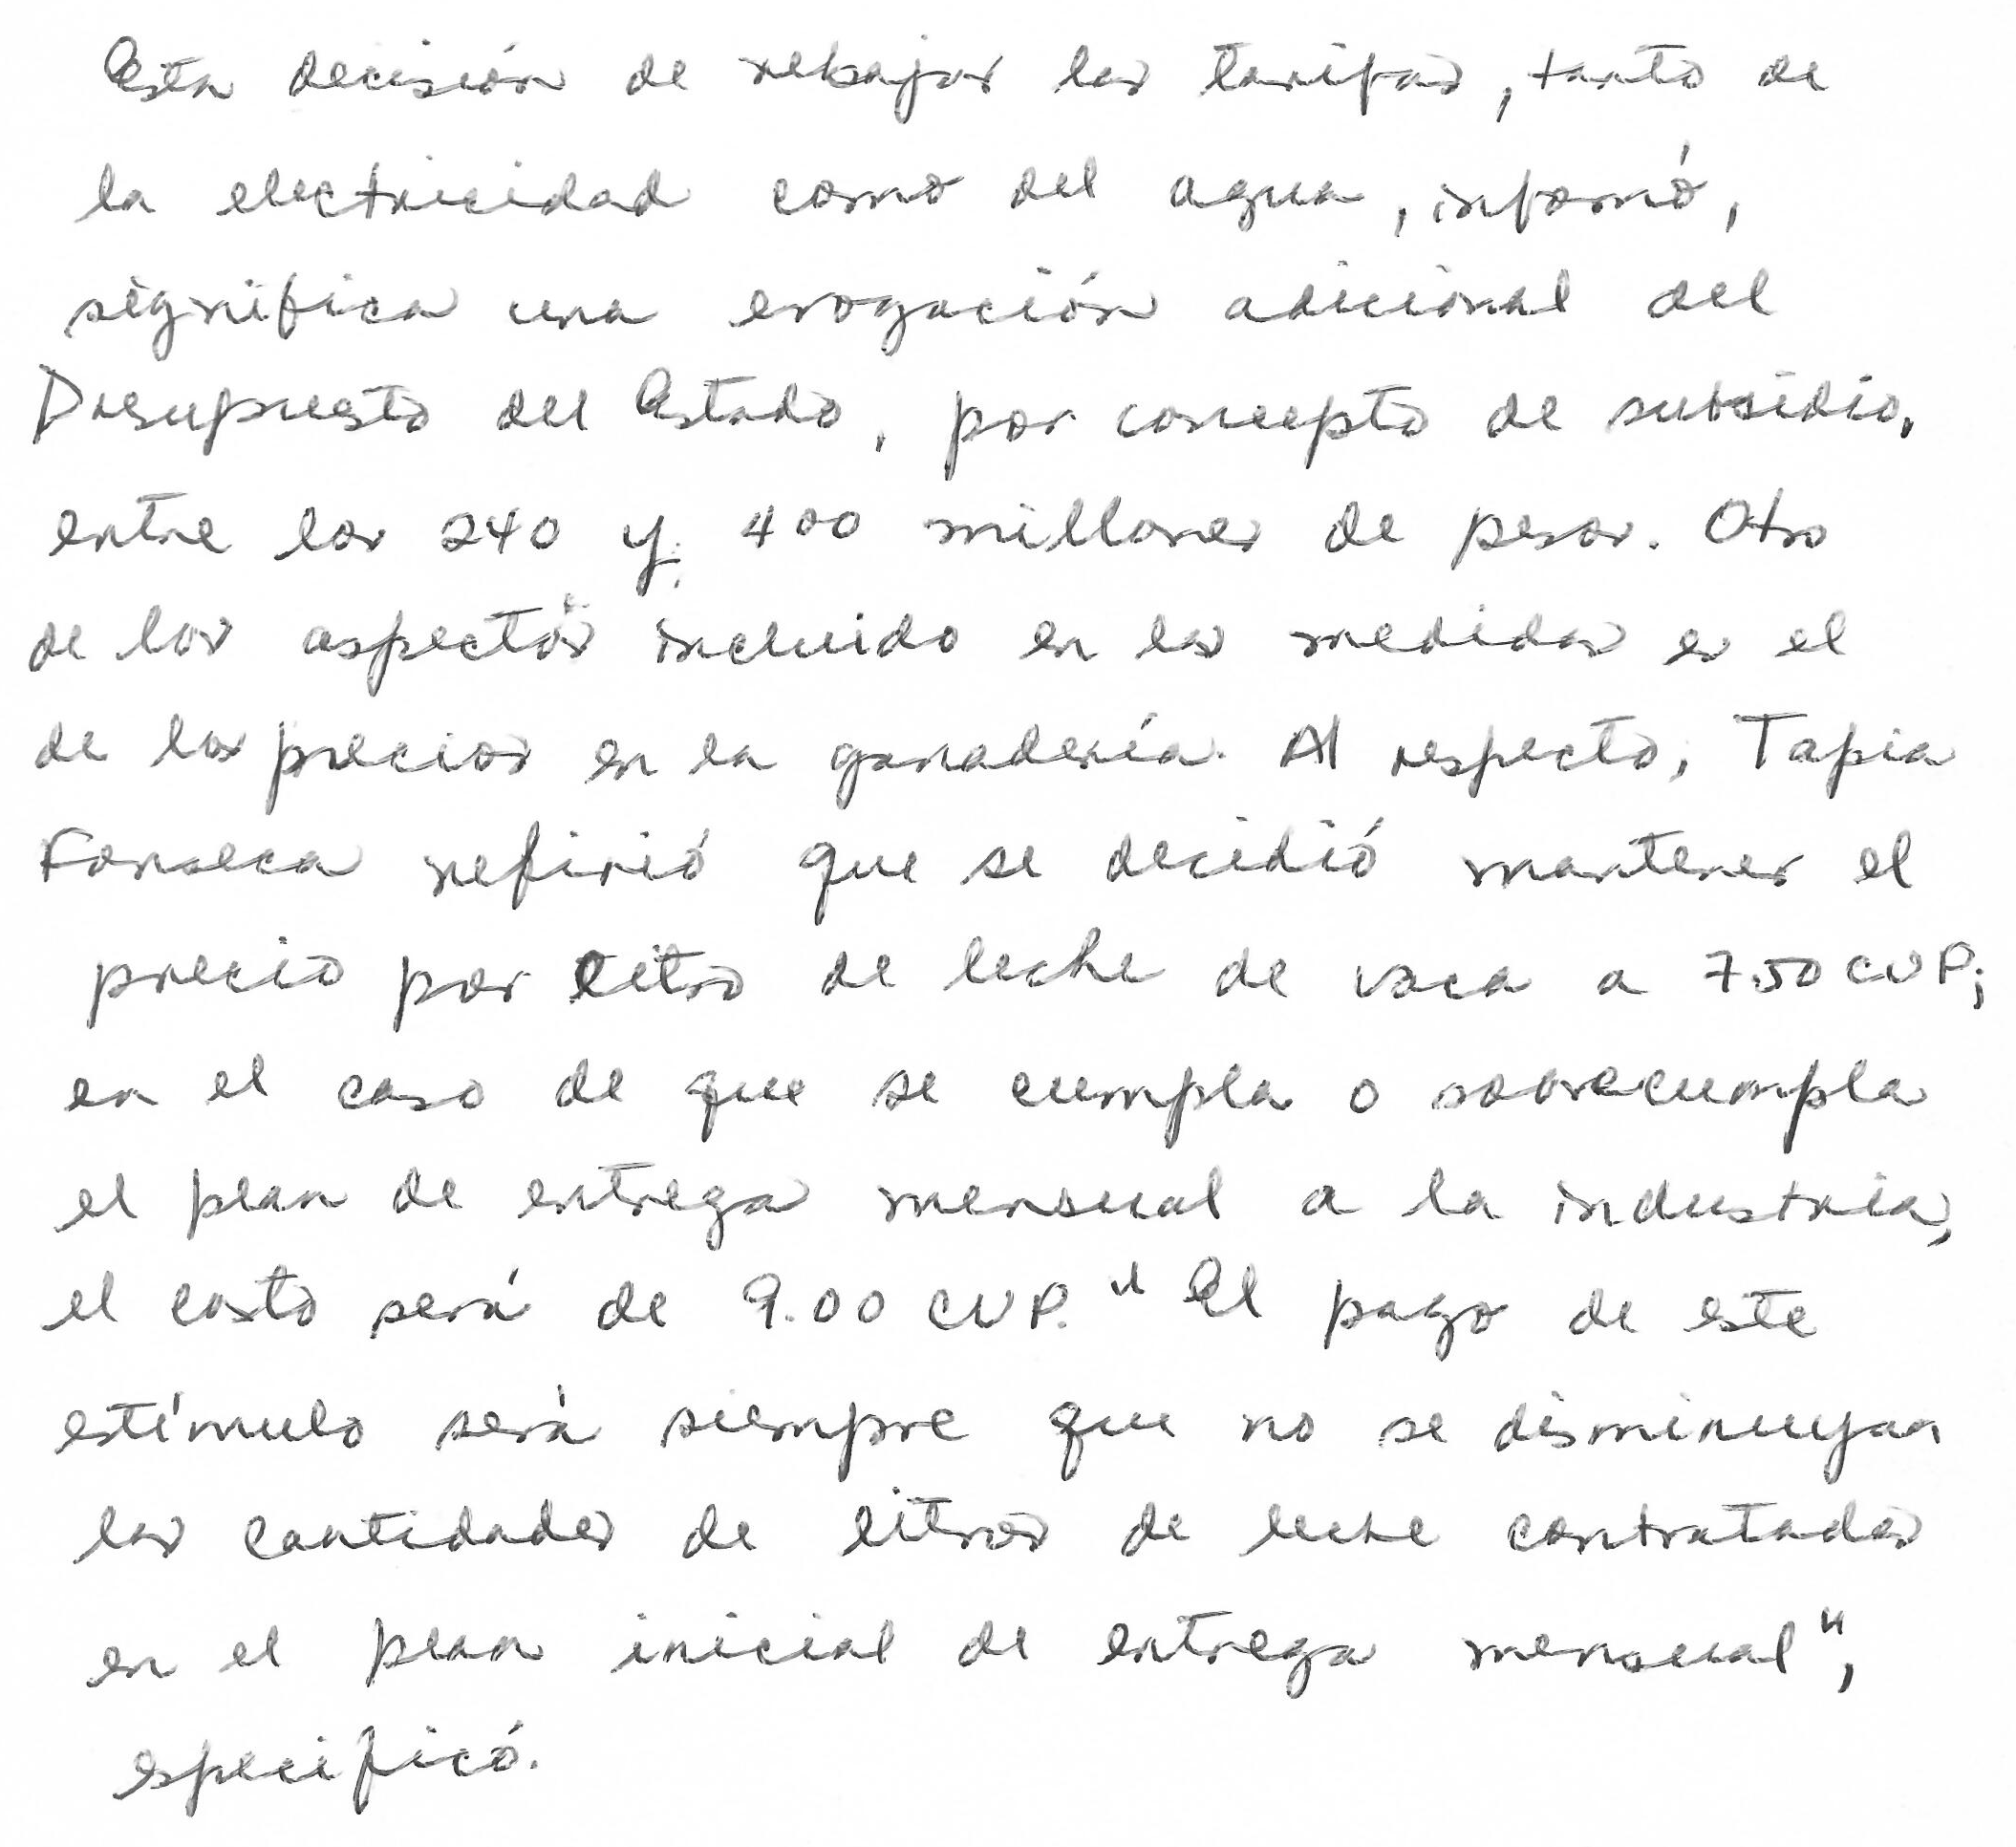 Esta decisión de rebajar las tarifas, tanto de
la electricidad como del agua, informó,
significa una erogación adicional del
Presupuesto del Estado, por concepto de subsidio,
entre los 240 y 400 millones de pesos. Otro
de los aspectos incluido en las medidas es el
de los precios en la ganadería. Al respecto, Tapia
Fonseca refirió que se decidió mantener el
precio por litro de leche de vaca a 7.50 CUP;
en el caso de que se cumpla o sobrecumpla
el plan de entrega mensual a la industria,
el costo será de 9.00 CUP. "El pago de este
estímulo será siempre que no se disminuyan
las cantidades de litros de leche contratadas
en el plan inicial de entrega mensual",
especificó.